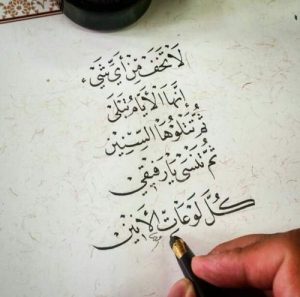 لَا تَخَفْ مِنْ أَيِّ شَيْءٍ
إِنَّهَا الْأَيَّامُ تُتْلَىٰ
ثُمَّ تَتْلُوهَا السِّنِين
ثُمَّ تُنْسَىٰ يَا رَفِيقِي
كُلُّ لَوْعَاتِ الْأَنِين